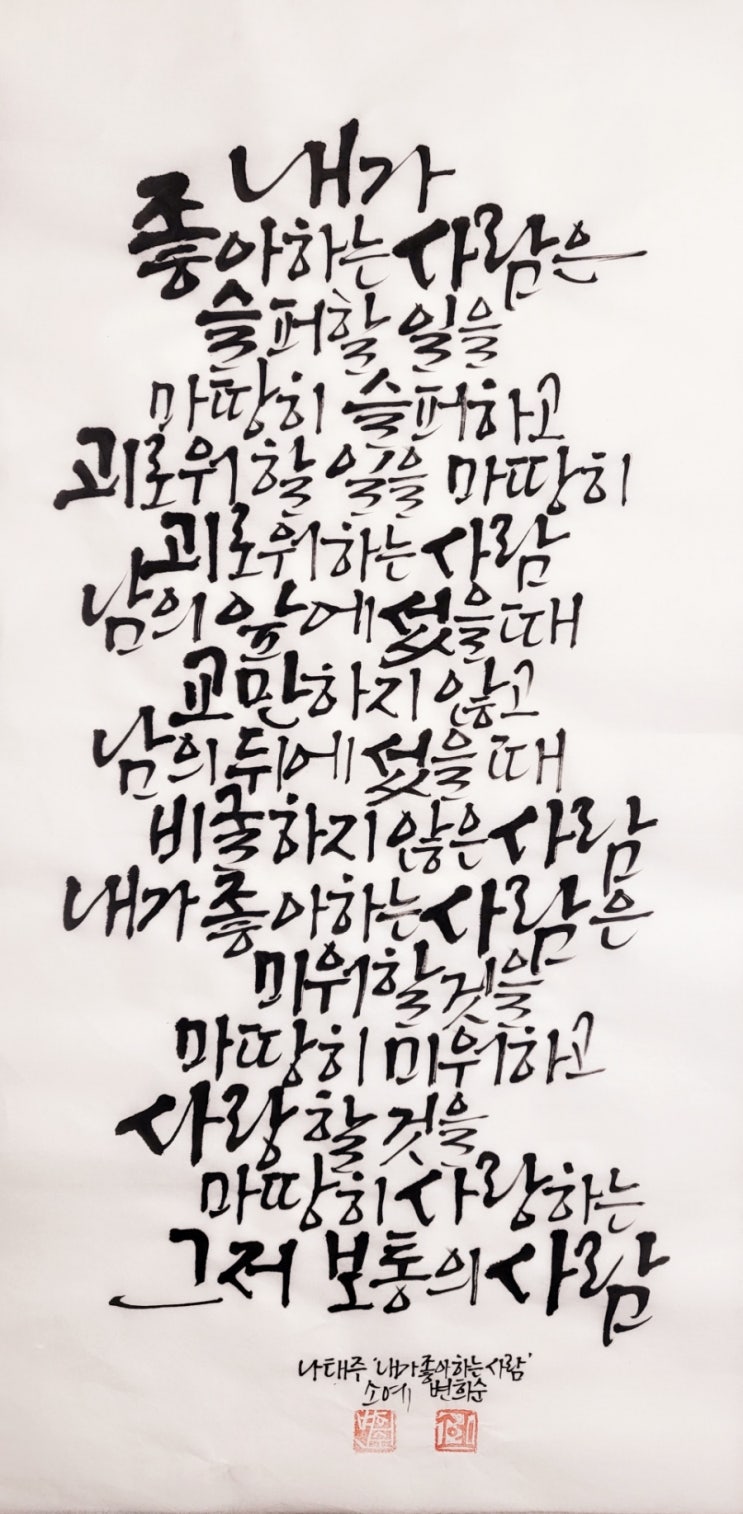 내가
좋아하는 사람은
슬퍼할 일을
마땅히 슬퍼하고
괴로워할 일을 마땅히
괴로워하는 사람
남의 앞에 섰을 때
교만하지 않고
남의 뒤에 섰을 때
비굴하지 않은 사람
내가 좋아하는 사람은
미워할 것을
마땅히 미워하고
사랑할 것을
마땅히 사랑하는
그저 보통의 사람
나태주 '내가 좋아하는 사람'
소예 변희순